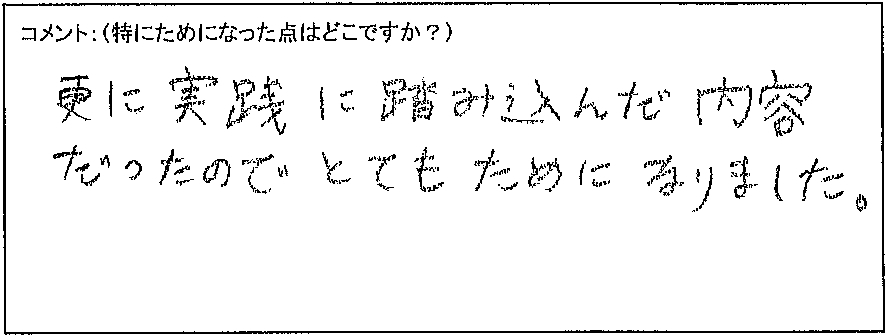 コメント:(特にためになった点はどこですか?)
更に実践に踏み込んだ内容
だったのでとてもためになりました。